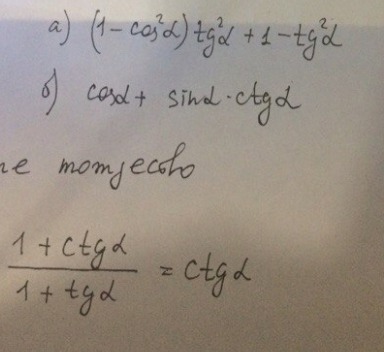 а) (1 - cos²α) tg²α + 1 - tg²α
б) cosα + sinα · ctgα
тождество
1 + ctgα
1 + tgα
= ctgα